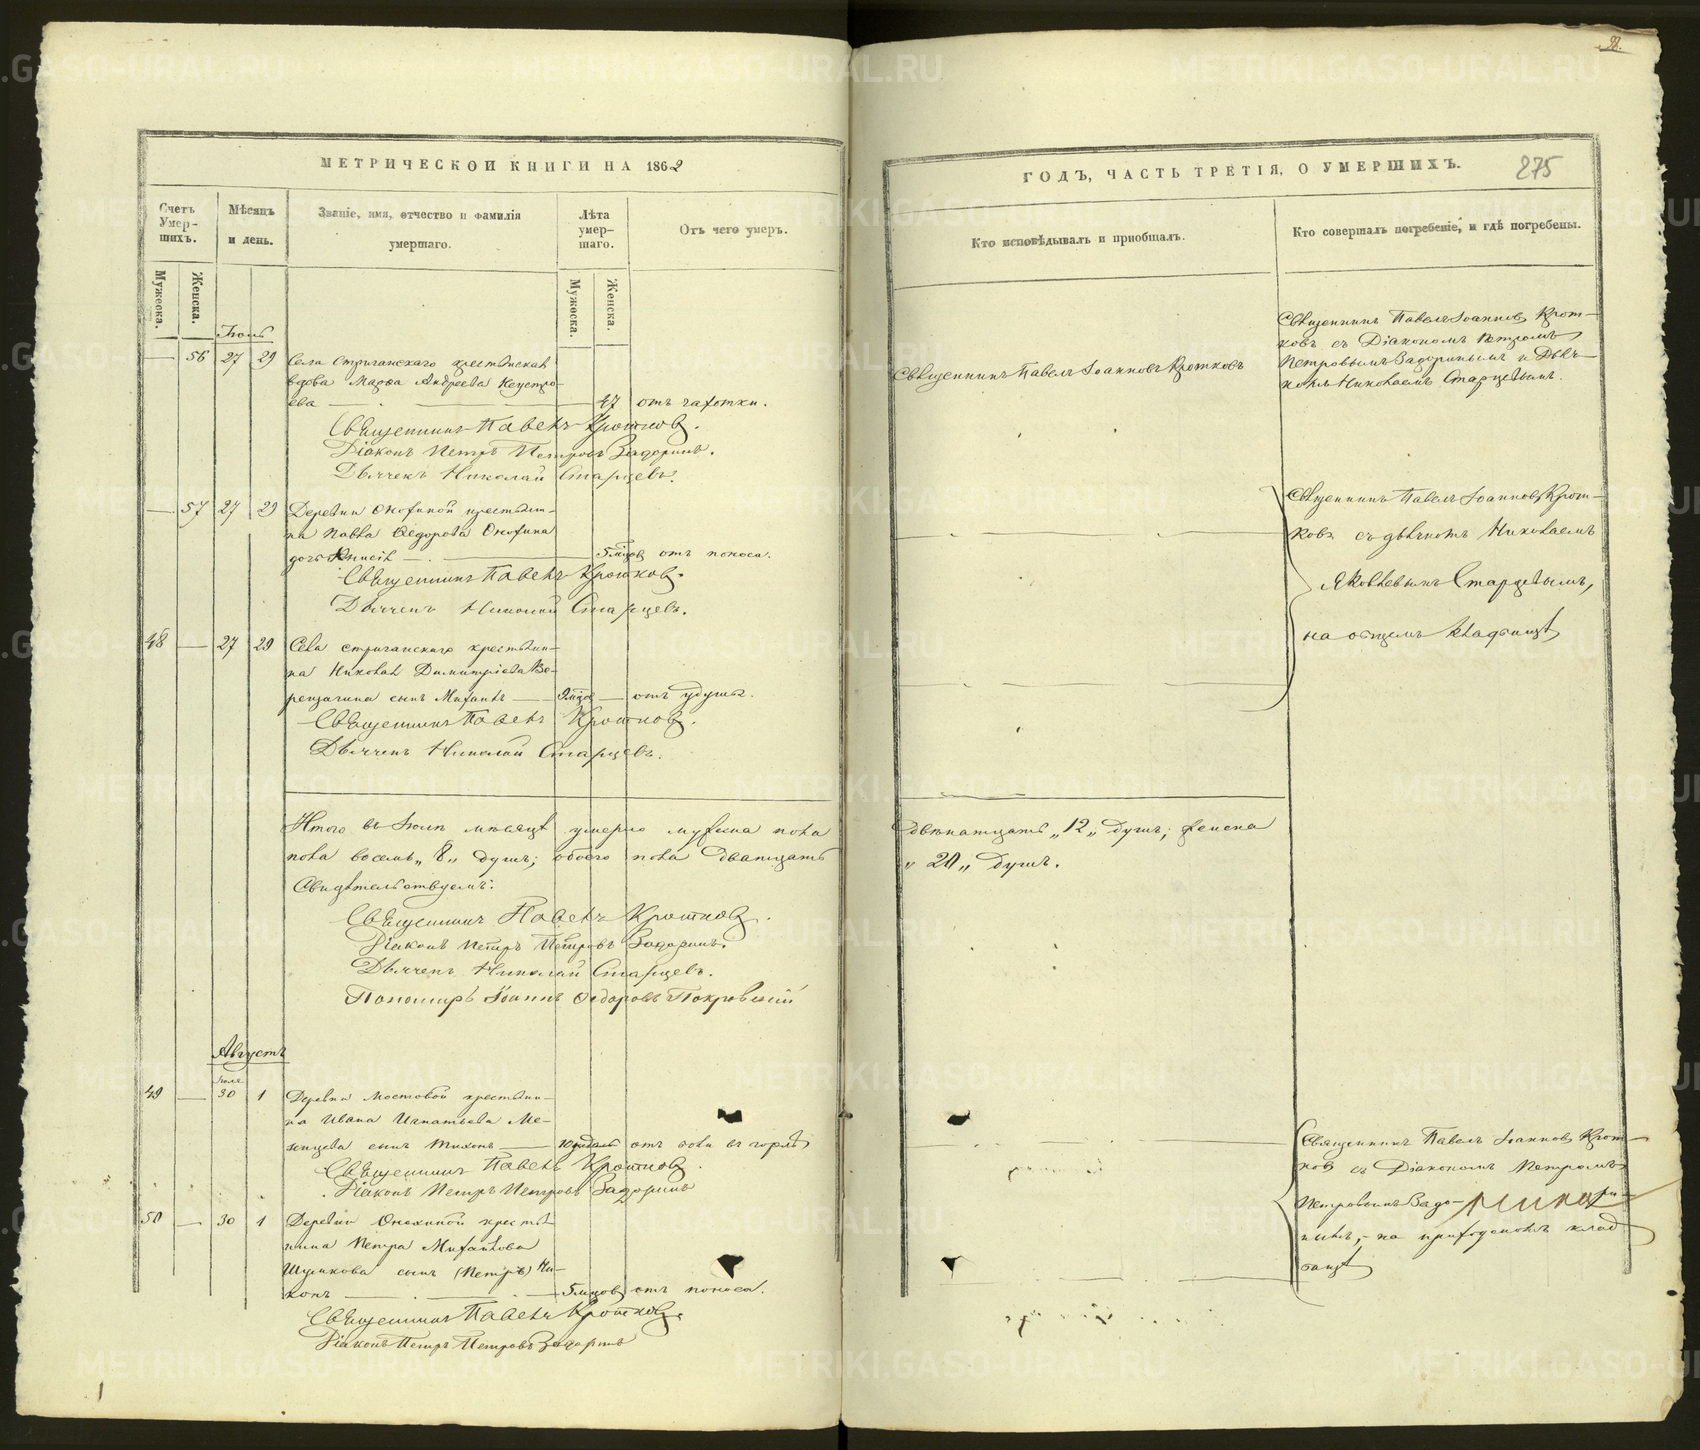 98.
МЕТРИЧЕСКОЙ КНИГИ НА 1862
Счетъ Умер-шихъ.
Мѣсяцъ и день.
Званіе, имя, отчество и фамилія умершаго.
Лѣта умер-шаго.
Отъ чего умеръ.
Мужеска.
Женска.
Мужеска.
Женска.
Іюль
— 56 27 29 Села Стриганскаго крестьянская
вдова Марѳа Андреева Неустро-
ева — 47 отъ чахотки.
Священникъ Павелъ Кротковъ.
Діаконъ Петръ Петровъ Задоринъ.
Дьячекъ Николай Старцевъ.
— 57 27 29 Деревни Онохиной крестьяни-
на Павла Ѳедорова Онохина
дочь — 5 мцовъ отъ поноса.
Священникъ Павелъ Кротковъ.
Дьячекъ Николай Старцевъ.
48 — 27 29 Села Стриганскаго крестьяни-
на Николая Димитріева Ве-
рещагина сынъ Михаилъ — 9 мцовъ — отъ удушья.
Священникъ Павелъ Кротковъ.
Дьячекъ Николай Старцевъ.
Итого въ Іюлѣ мѣсяцѣ умерло мужеска пола
пола восемь „8„ душъ; обоего пола двадцать
Свидѣтельствуемъ:
Священникъ Павелъ Кротковъ.
Діаконъ Петръ Петровъ Задоринъ.
Дьячекъ Николай Старцевъ.
Пономарь Іоаннъ Ѳедоровъ Покровскій
Августъ
Іюля
49 — 30 1 Деревни Мостовой крестьяни-
на Ивана Игнатьева Ме-
зенцева сынъ Тихонъ — 10 недель отъ боли въ горлѣ
Священникъ Павелъ Кротковъ.
Діаконъ Петръ Петровъ Задоринъ
50 — 30 1 Деревни Онохиной крестья-
нина Петра Михайлова
Шумкова сынъ (Петръ) Ни-
конъ — 5 мцовъ отъ поноса.
Священникъ Павелъ Кротковъ.
Діаконъ Петръ Петровъ Задоринъ
ГОДЪ, ЧАСТЬ ТРЕТІЯ, О УМЕРШИХЪ.
275
Кто исповѣдывалъ и пріобщалъ.
Кто совершалъ погребеніе, и гдѣ погребены.
Священникъ Павелъ Іоанновъ Кротковъ
Священникъ Павелъ Іоанновъ Крот-
ковъ съ Діакономъ Петромъ
Петровымъ Задоринымъ и Дьяч-
комъ Николаемъ Старцевымъ.
Священникъ Павелъ Іоанновъ Крот-
ковъ съ дьячкомъ Николаемъ
Яковлевымъ Старцевымъ,
на общемъ кладбищѣ
двѣнадцать „12„ душъ; женска
„20„ душъ.
Священникъ Павелъ Іоанновъ Крот-
ковъ съ Діакономъ Петромъ
Петровымъ Задо-
нымъ, на приходскомъ клад-
бищѣ
METRIKI.GASO-URAL.RU